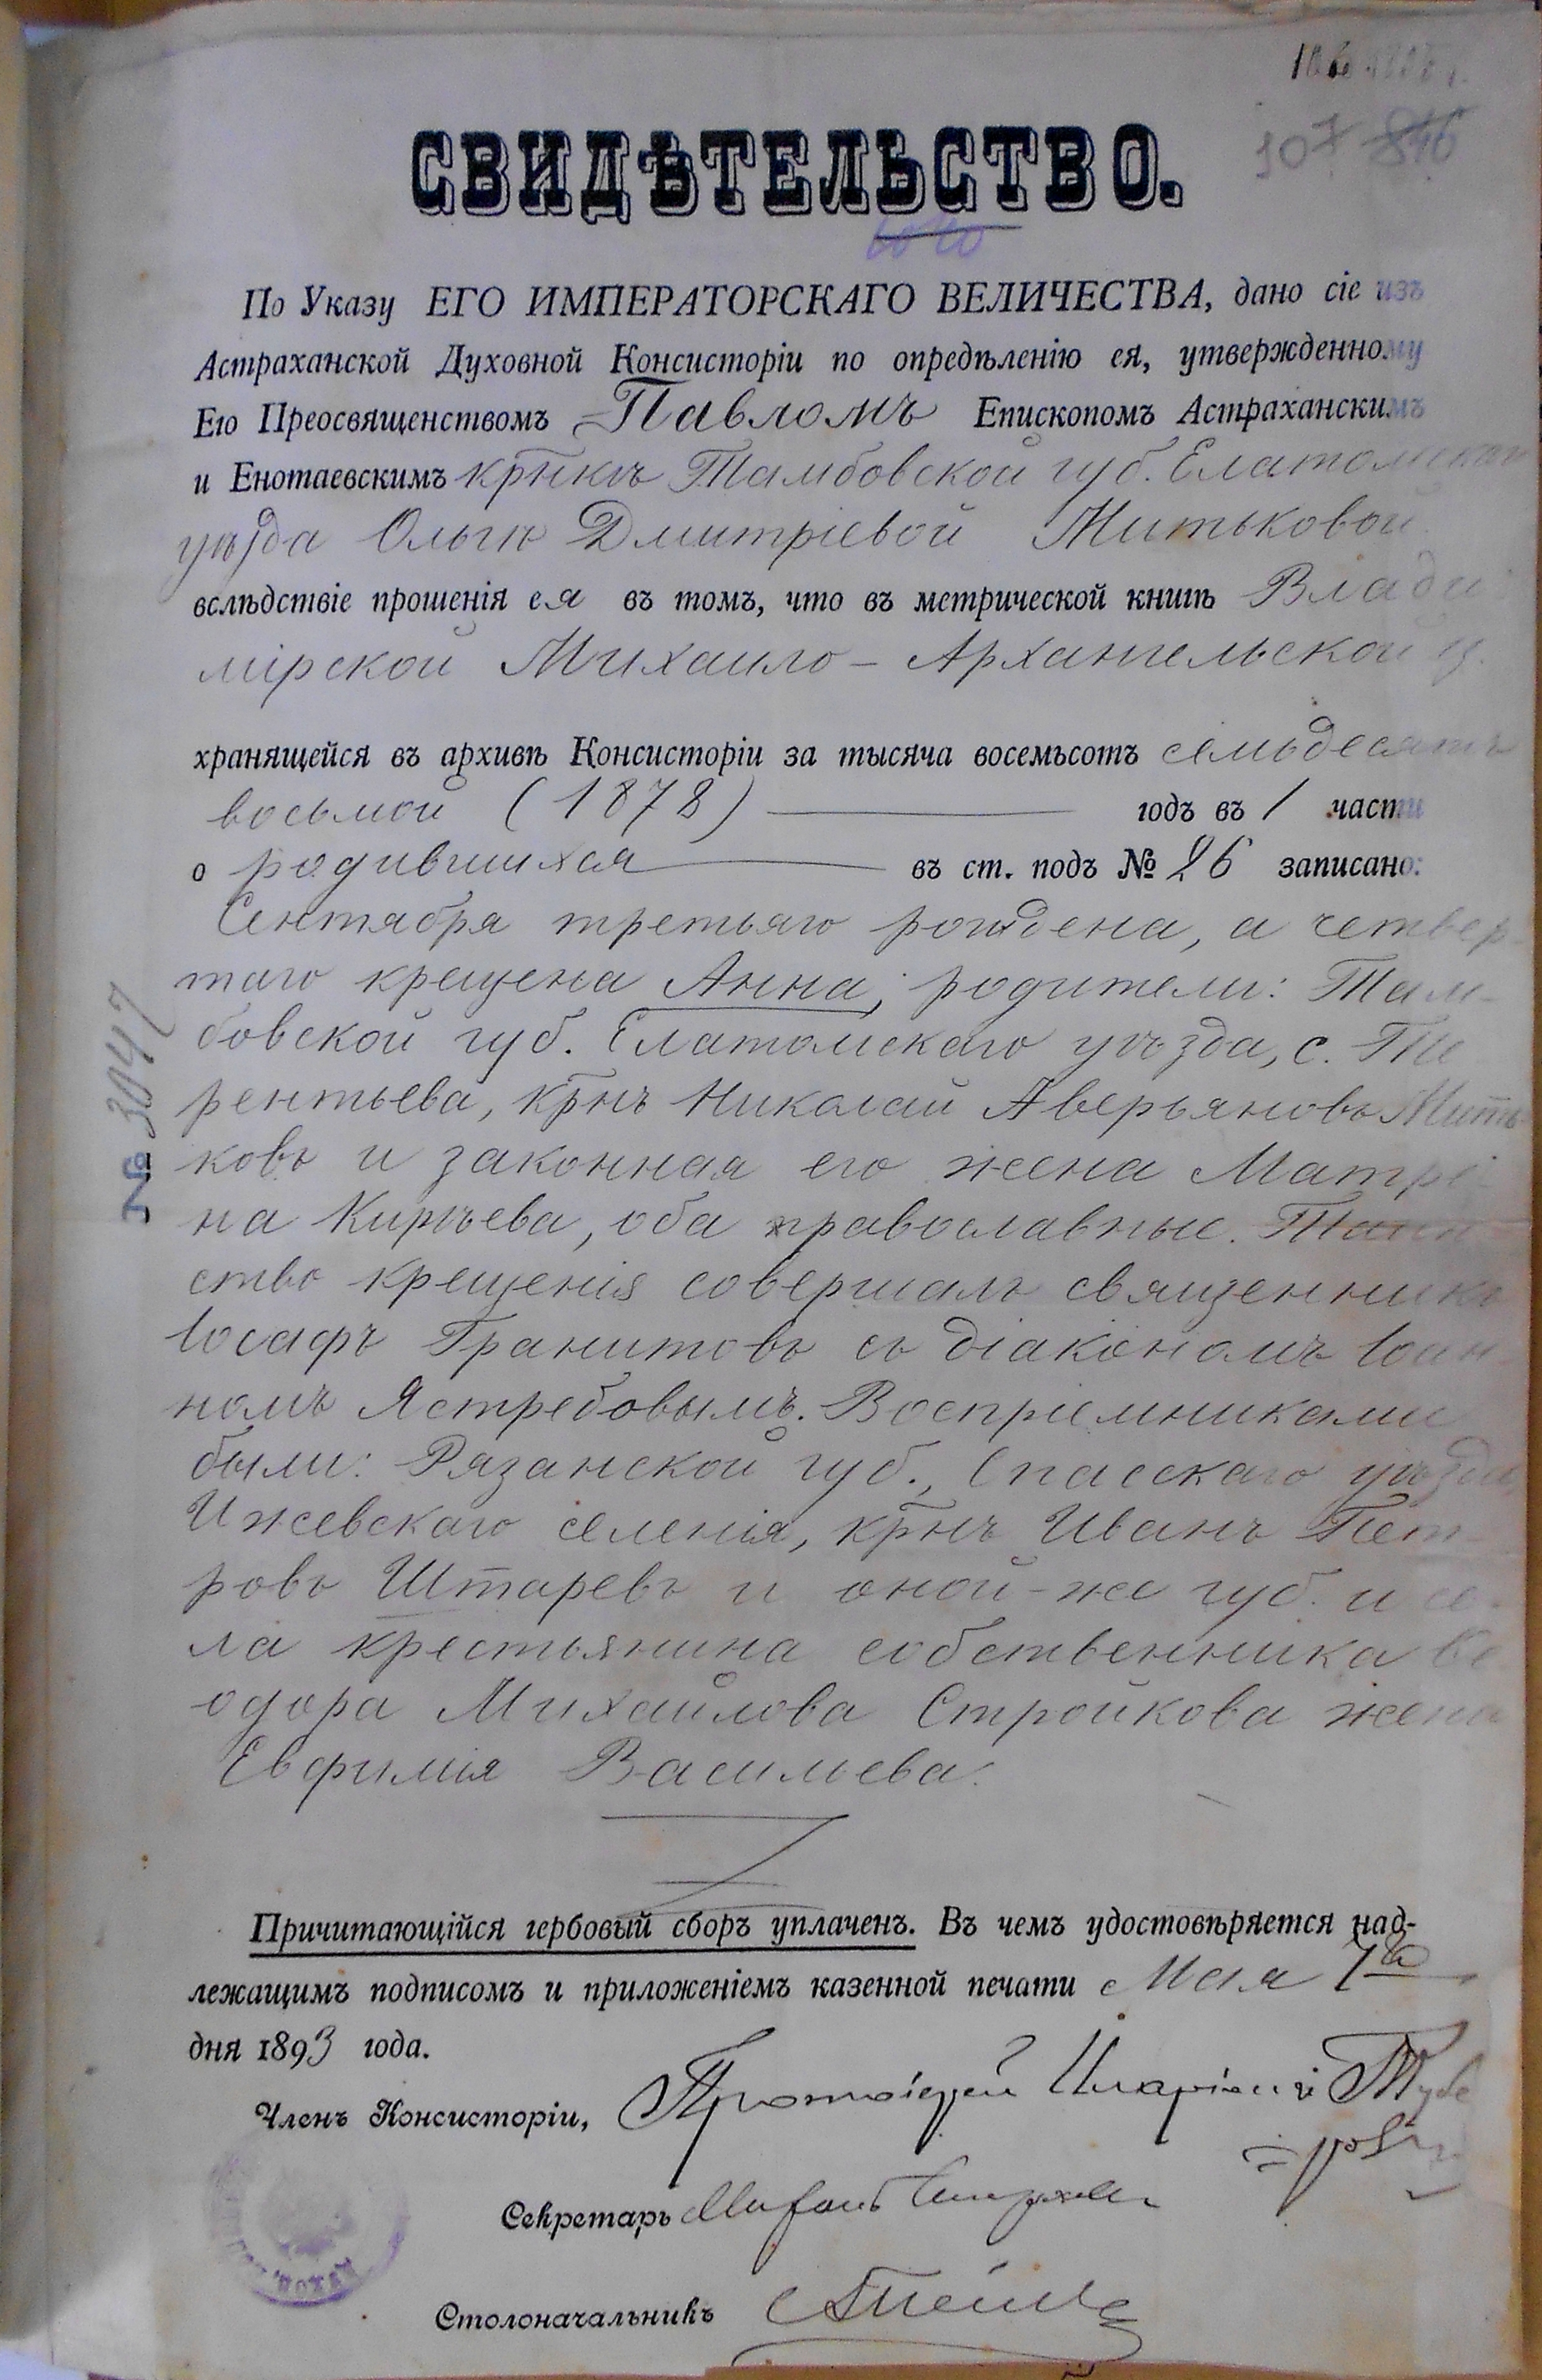 107 846
СВИДѢТЕЛЬСТВО.
По Указу ЕГО ИМПЕРАТОРСКАГО ВЕЛИЧЕСТВА, дано сіе изъ
Астраханской Духовной Консисторіи по опредѣленію ея, утвержденному
Его Преосвященствомъ Павломъ Епископомъ Астраханскимъ
и Енотаевскимъ крнкѣ Тамбовской губ. Елатомскаго
уѣзда Ольгѣ Дмитріевой Митьковой
вслѣдствіе прошенія ея въ томъ, что въ метрической книгѣ Влади
мірской Михаило-Архангельской ц.
хранящейся въ архивѣ Консисторіи за тысяча восемьсотъ семьдесятъ
восьмой (1878) годъ въ 1 части
о родившихся въ ст. подъ № 26 записано:
Сентября третьяго рождена, а четвер-
таго крещена Анна; родители: Там-
бовской губ. Елатомскаго уѣзда, с. Те
рентьева, крнъ Николай Аверьяновъ Мить
ковъ и законная его жена Матре-
на Кирѣева, оба православные. Таин
ство крещенія совершалъ священникъ
Іосафъ Гранитовъ съ діакономъ Іоан
номъ Ястребовымъ. Воспріемниками
были: Рязанской губ., Спасскаго уѣзда,
Ижевскаго селенія, крнъ Иванъ Пет-
ровъ Штаревъ и оной-же губ. и се-
ла крестьянина собственника Ѳе
одора Михайлова Стройкова жена
Евфимія Васильева.
№ 3047
Причитающійся гербовый сборъ уплаченъ. Въ чемъ удостовѣряется над-
лежащимъ подписомъ и приложеніемъ казенной печати Мая 7го
дня 1893 года.
Членъ Консисторіи, Протоіерей
Секретарь
Столоначальникъ